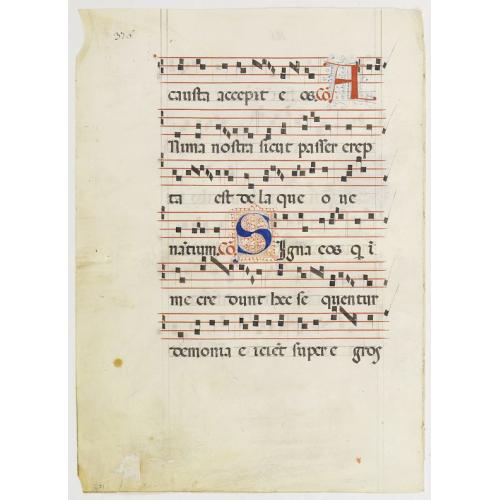 causta accepit e os. Cō A
Nima nostra sicut passer erep
ta est de la que o ne
nātium. Cō S Igna eos q i
me cre dunt hec se quentur
demonia e iciēt super e gros